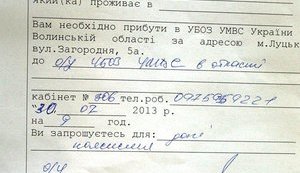 який(ка) проживає в
Вам необхідно прибути в УБОЗ УМВС України
Волинській області за адресою м.Луцьк
вул.Загородня, 5а.
до о/у УБОЗ УМВС в області
кабінет № 306 тел.роб. 0975969221
"30. 07 2013 р.
на 9 год.
Ви запрошуєтесь для: дачі
пояснення
о/у